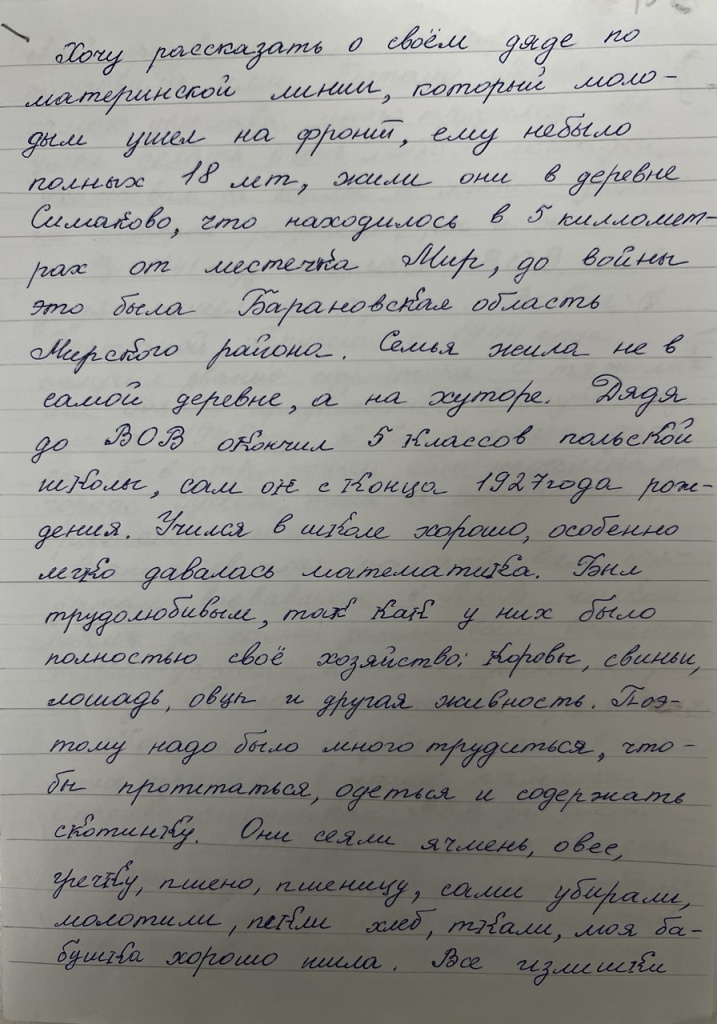 Хочу рассказать о своём дяде по
материнской линии, который моло-
дым ушел на фронт, ему небыло
полных 18 лет, жили они в деревне
Симаково, что находилось в 5 килломет-
рах от местечка Мир, до войны
это была Барановская область
Мирского района. Семья жила не в
самой деревне, а на хуторе. Дядя
до ВОВ окончил 5 классов польской
школы, сам он с конца 1927года рож-
дения. Учился в школе хорошо, особенно
легко давалась математика. Был
трудолюбивым, так как у них было
полностью своё хозяйство: коровы, свиньи,
лошадь, овцы и другая живность. Поэ-
тому надо было много трудиться, что-
бы пропитаться, одеться и содержать
скотинку. Они сеяли ячмень, овес,
гречку, пшено, пшеницу, сами убирали,
молотили, пекли хлеб, ткали, моя ба-
бушка хорошо шила. Все излишки